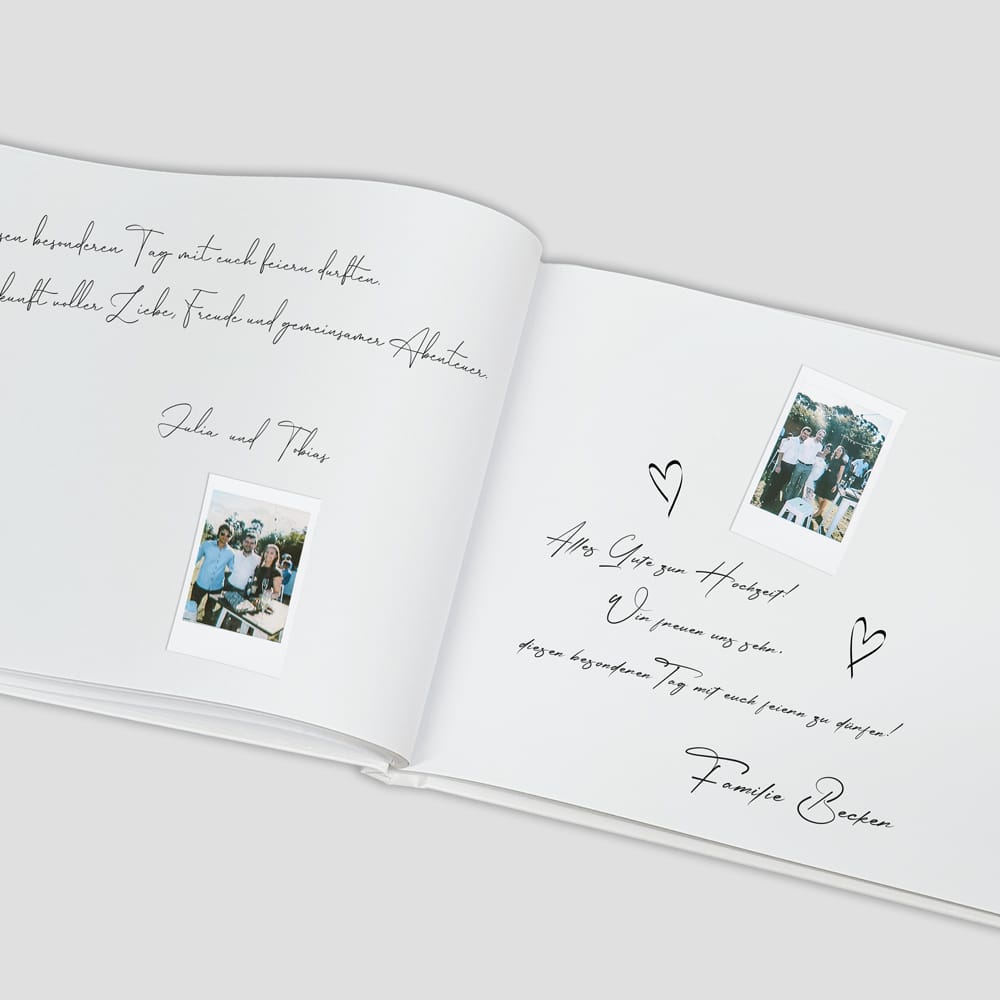 sen besonderen Tag mit euch feiern durften.
kunft voller Liebe, Freude und gemeinsamer Abenteuer.
Julia und Tobias
Alles Gute zun Hochzeit!
Win freuen uns sehn,
diesen besondenen Tag mit euch feienn zu dünfen!
Familie Becken